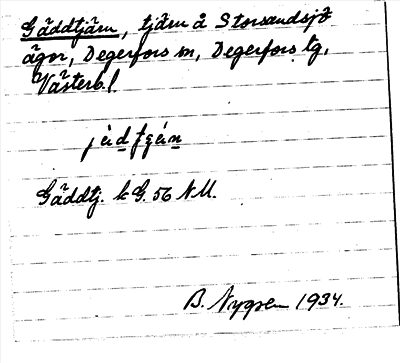 Gäddtjärn, tjärn å Storsandsjö
ägor, Degerfors sn, Degerfors tg,
Västerb. l.
Gäddtj. k G. 56 NU.
B. Nygren 1934.